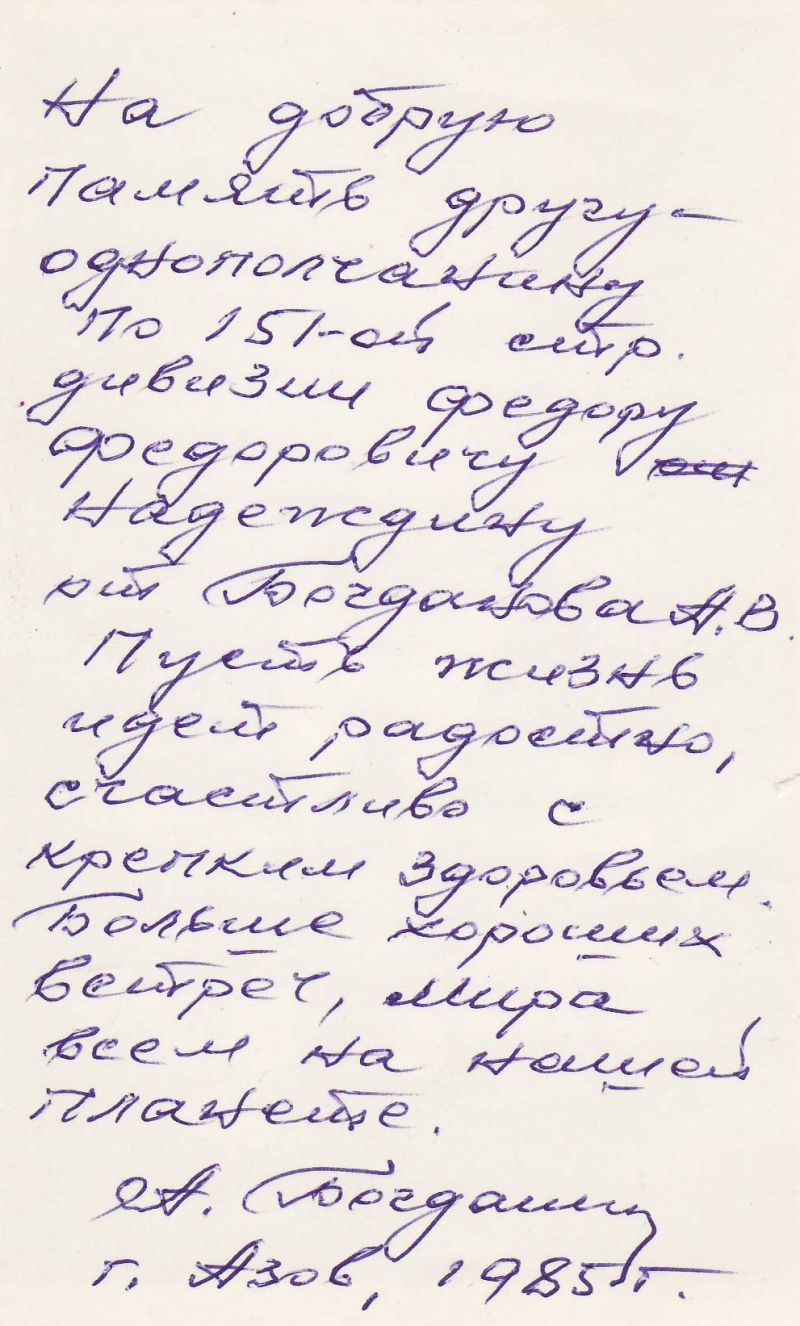 На добрую
память другу-
однополчанину
по 151-ой стр.
дивизии Федору
Федоровичу
Надеждину
от Богданова А.В.
Пусть жизнь
идет радостно,
счастливо с
крепким здоровьем.
Больше хороших
встреч, мира
всем на нашей
планете.
А. Богданов
г. Азов, 1985 г.